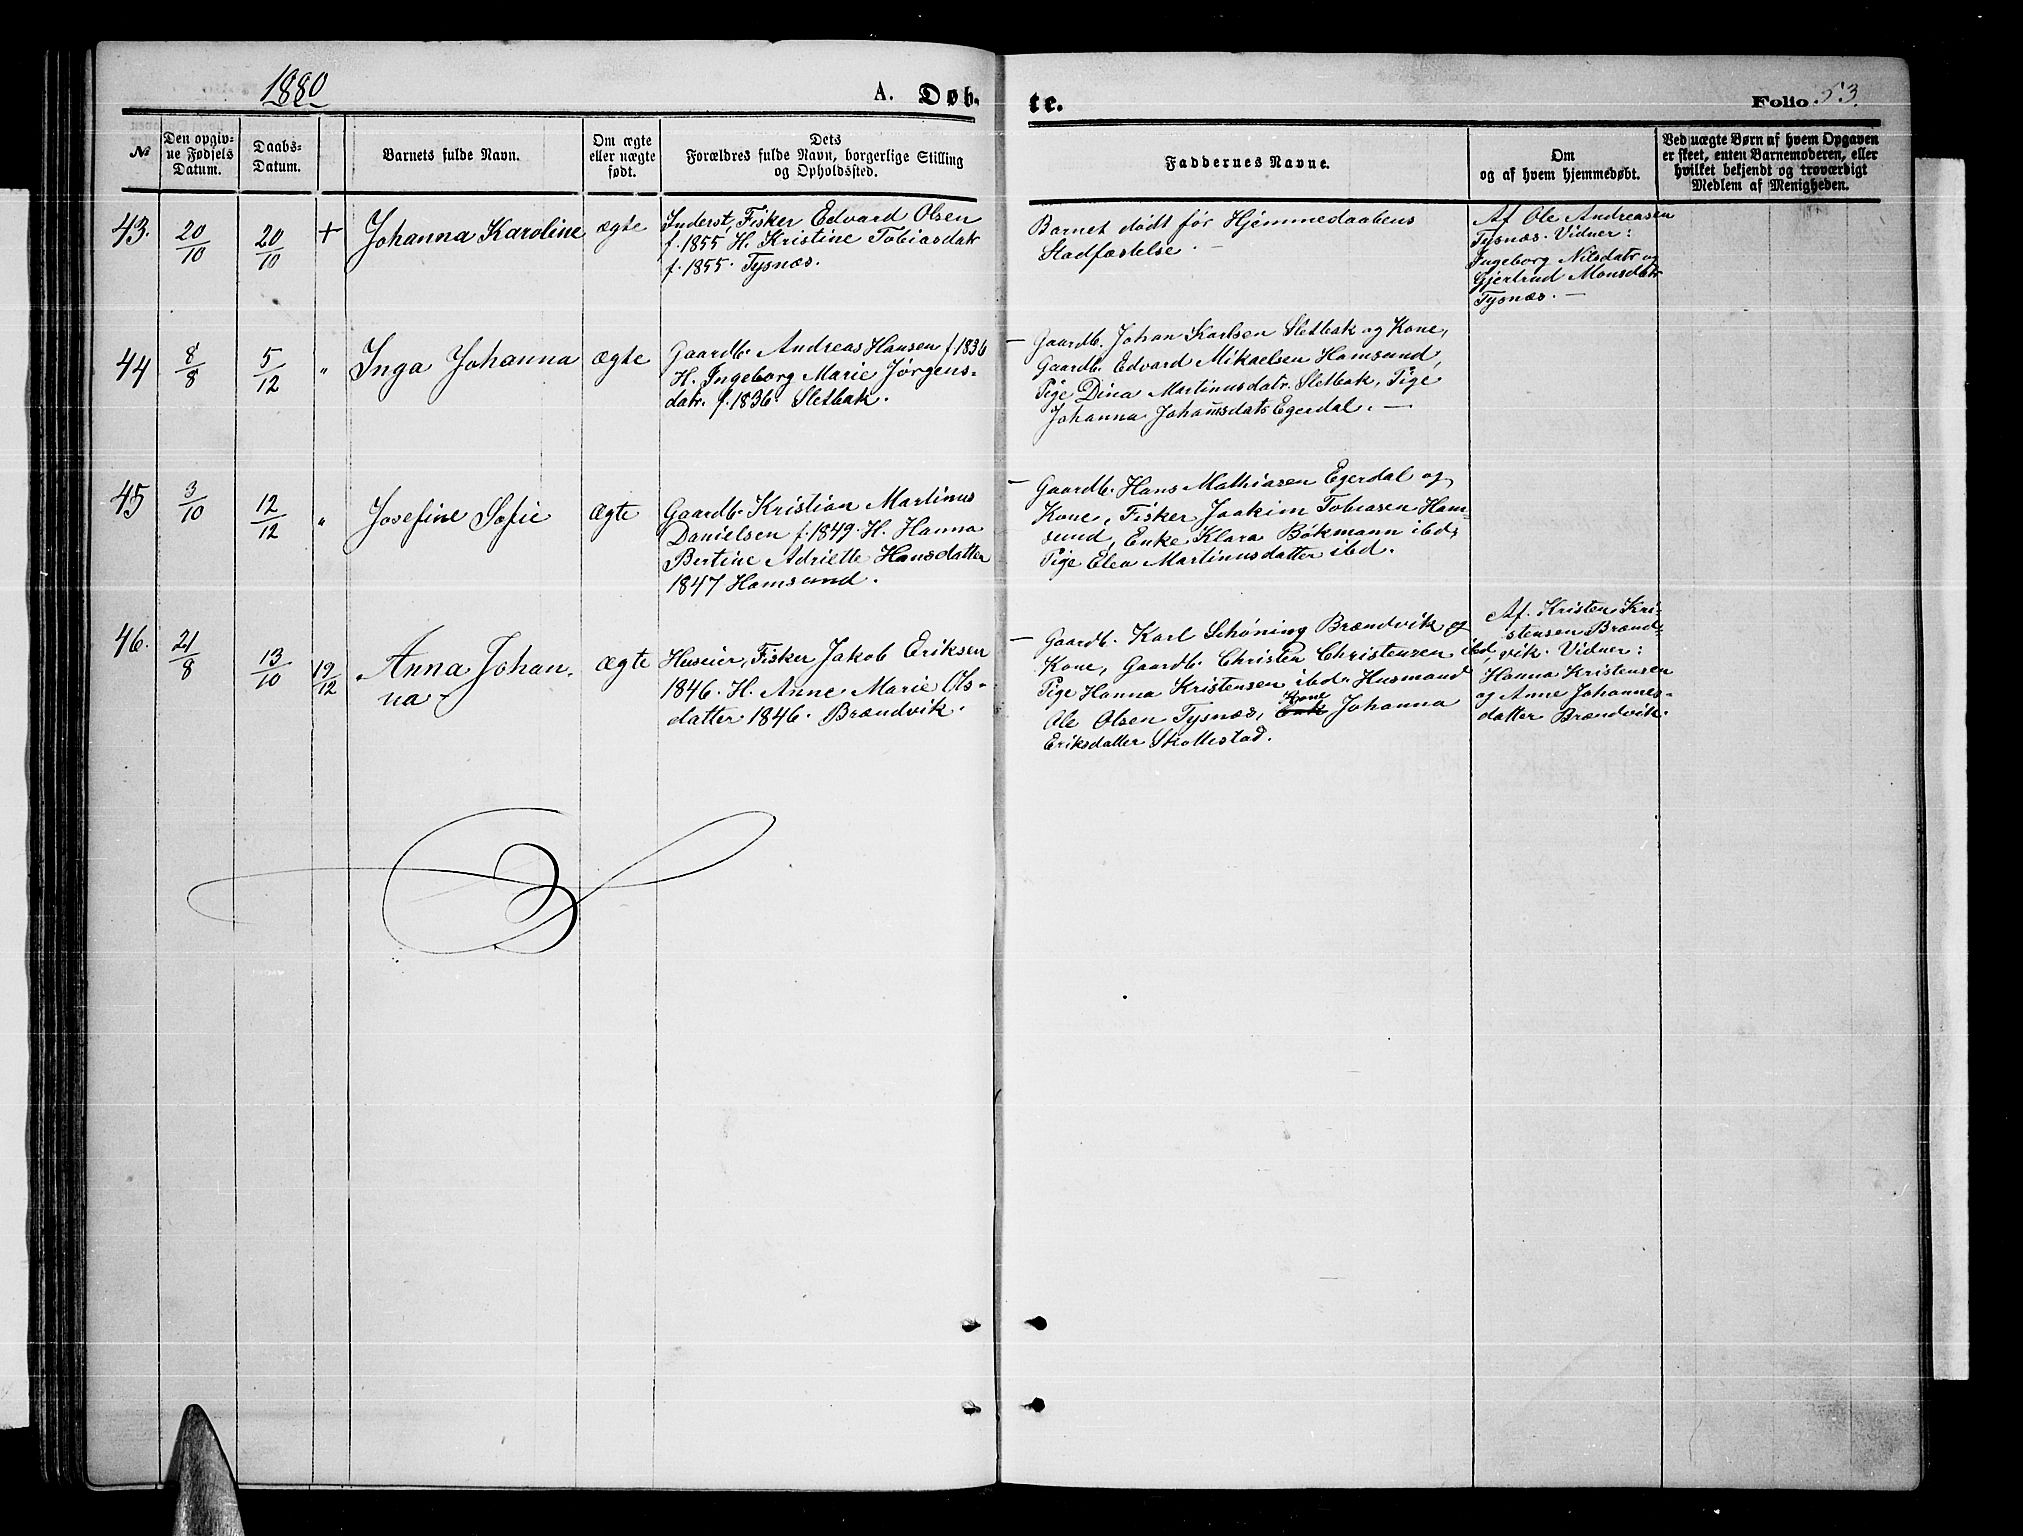 1880
A. Døb-
te.
Folio 53.
No
Den opgiv-
ne Fødsels
Datum.
Daabs-
Datum.
Barnets fulde Navn.
Om ægte
eller uægte
født.
Dets
Forældres fulde Navn, borgerlige Stilling
og Opholdssted.
Faddernes Navne.
Om
og af hvem hjemmedøbt.
Ved uægte Børn af hvem Opgaven
er skeet, enten Barnemoderen, eller
hvilket bekjendt og troværdigt
Medlem af Menigheden.
43. 20/10 20/10 + Johanna Karoline ægte
Inderst, Fisker Edvard Olsen
f. 1855 H. Kristine Tobiasdatr
f. 1855. Tysnæs.
Barnet dødt før Hjemmedaabens
Stadfæstelse. —
Af Ole Andreasen
Tysnæs. Vidner:
Ingeborg Nilsdatr og
Gjertrud Monsdatr
Tysnæs. —
44 8/8 5/12 " Inga Johanna ægte
Gaardb. Andreas Hansen f. 1836
H. Ingeborg Marie Jørgens-
datr. f. 1836. Sletbak.
— Gaardb. Johan Karlsen Sletbak og Kone,
Gaardb. Edvard Mikaelsen Hamsund,
Pige Dina Martinusdatr. Sletbak, Pige
Johanna Johansdatr Egerdal. —
45 3/10 12/12 " Josefine Sofie ægte
Gaardb. Kristian Martinus
Danielsen f. 1849. H. Hanna
Bertine Adriette Hansdatter
1847 Hamsund.
— Gaardb. Hans Mathiasen Egerdal og
Kone, Fisker Joakim Tobiasen Ham-
sund, Enke Klara Bøkmann ibd,
Pige Elea Martinusdatter ibd.
46. 21/8 13/10 19/12 Anna Johan-
na
ægte
Huseier, Fisker Jakob Eriksen
1846. H. Anne Marie Ols-
datter 1846. Brændvik.
— Gaardb. Karl Schøning Brændvik og
Kone, Gaardb. Christen Christensen ibd,
Pige Hanna Kristensen ibd. Husmand
Ole Olsen Tysnæs, Kone Johanna
Eriksdatter Skottestad.
Af. Kristen Kri-
stensen Brænd-
vik. Vidner:
Hanna Kristensen
og Anne Johannes-
datter Brændvik.